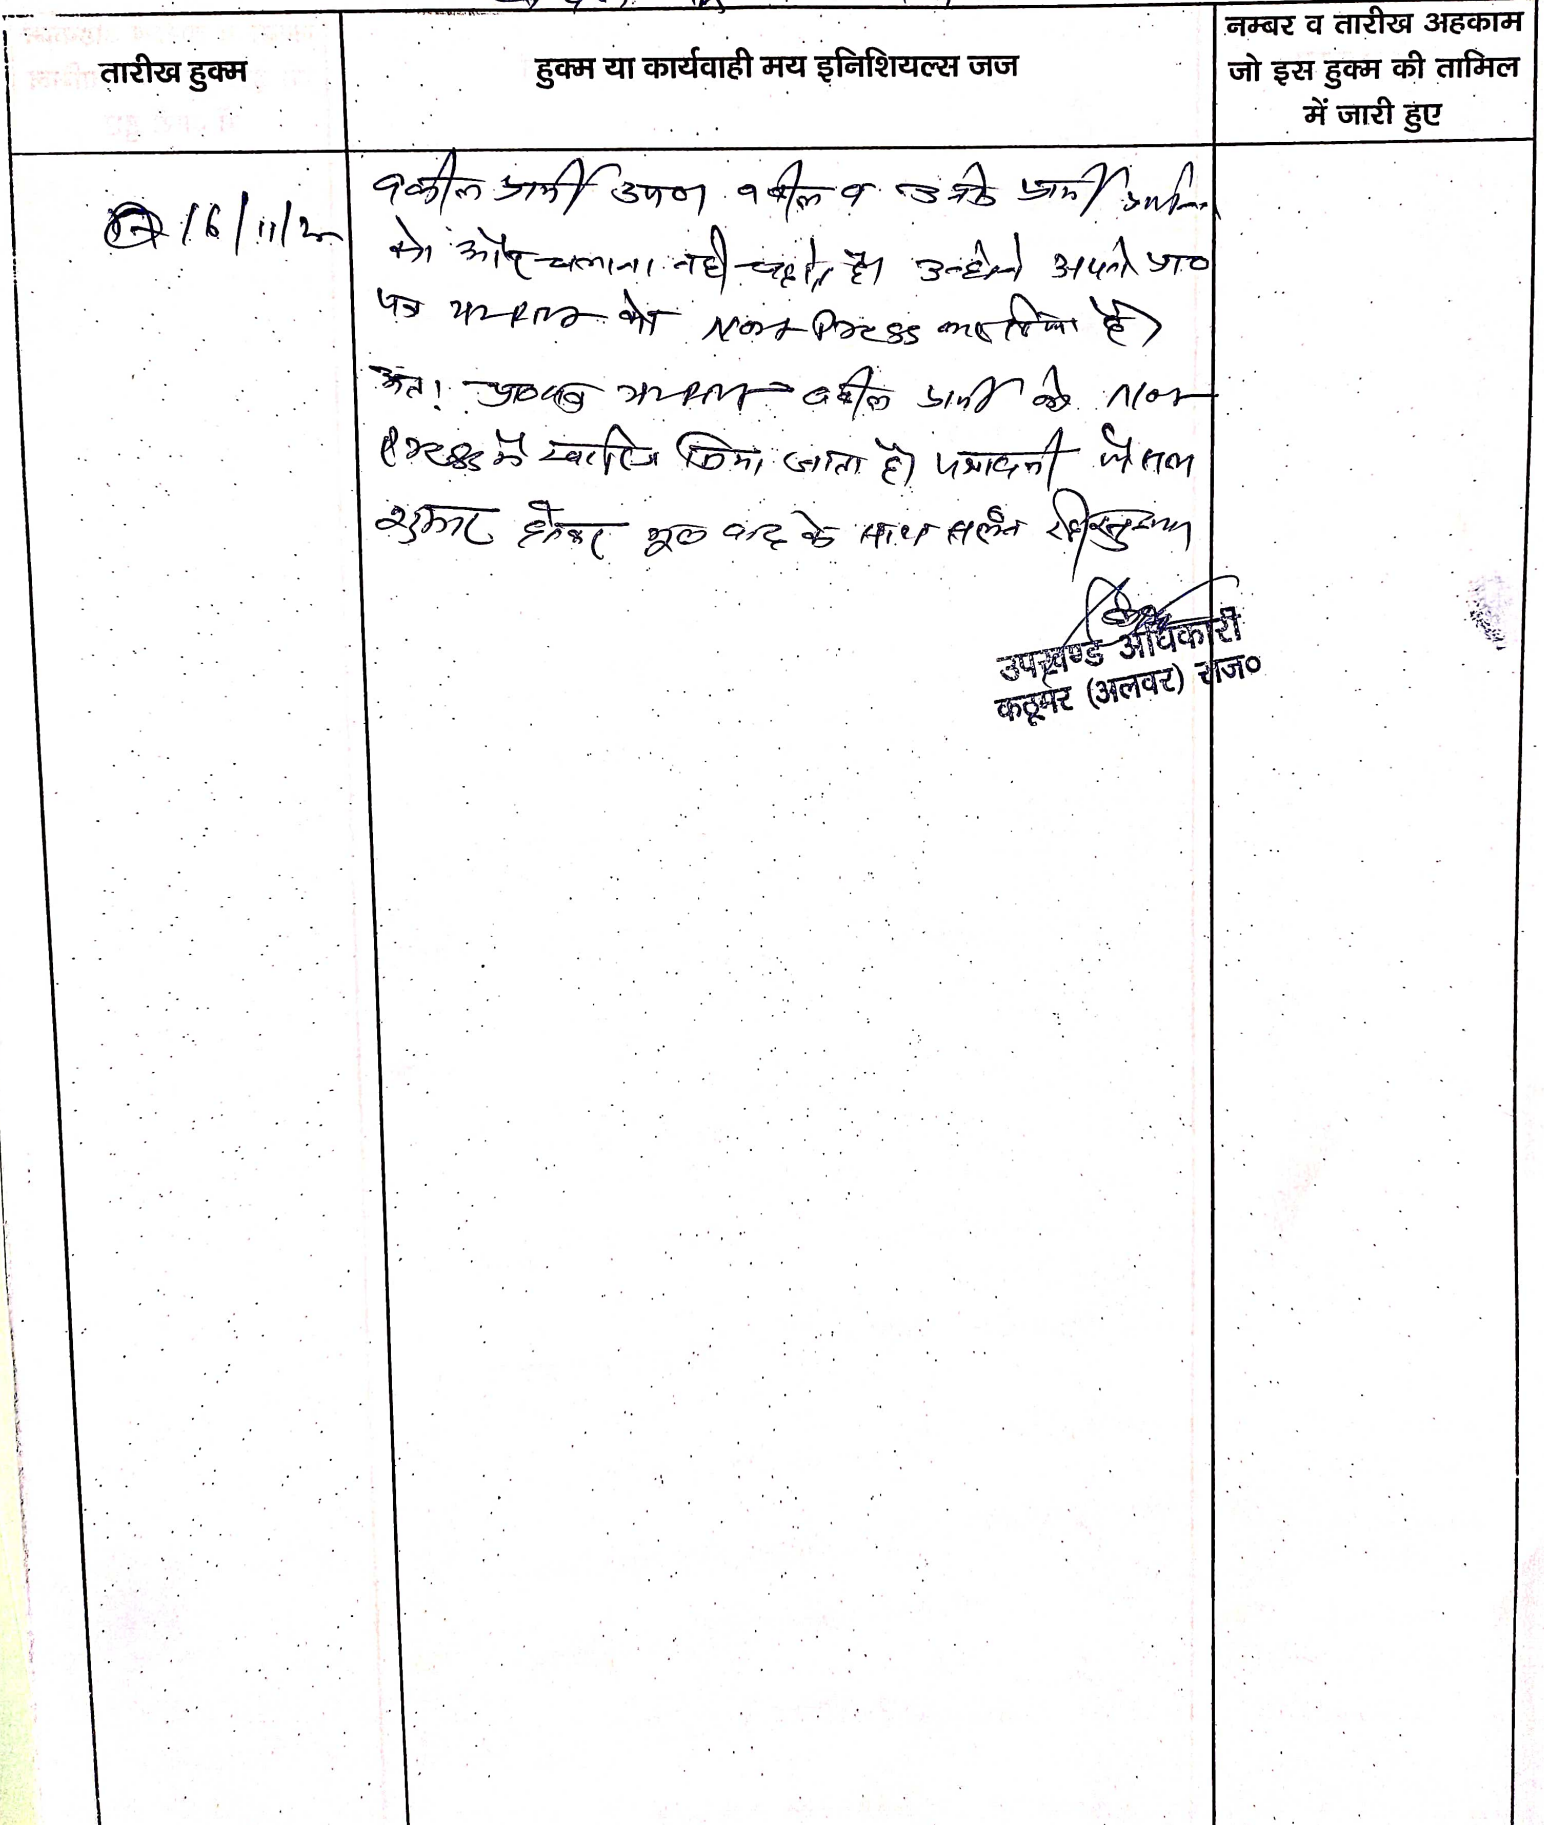 तारीख हुक्म
हुक्म या कार्यवाही मय इनिशियल्स जज
नम्बर व तारीख अहकाम
जो इस हुक्म की तामिल
में जारी हुए
16/11/2
वकील प्रार्थी उप० वकील व उनके प्रार्थी
को और चलाना नही चाहते है। उन्होने अपने प्रा०
पत्र को Not Press कर दिया है।
अतः प्रा० पत्र वकील प्रार्थी के Not
Press में खारिज किया जाता है। पत्रावली फैसल
शुमार होकर मूल वाद के साथ संलग्न रहे।
उपखण्ड अधिकारी
कठूमर (अलवर) राज०